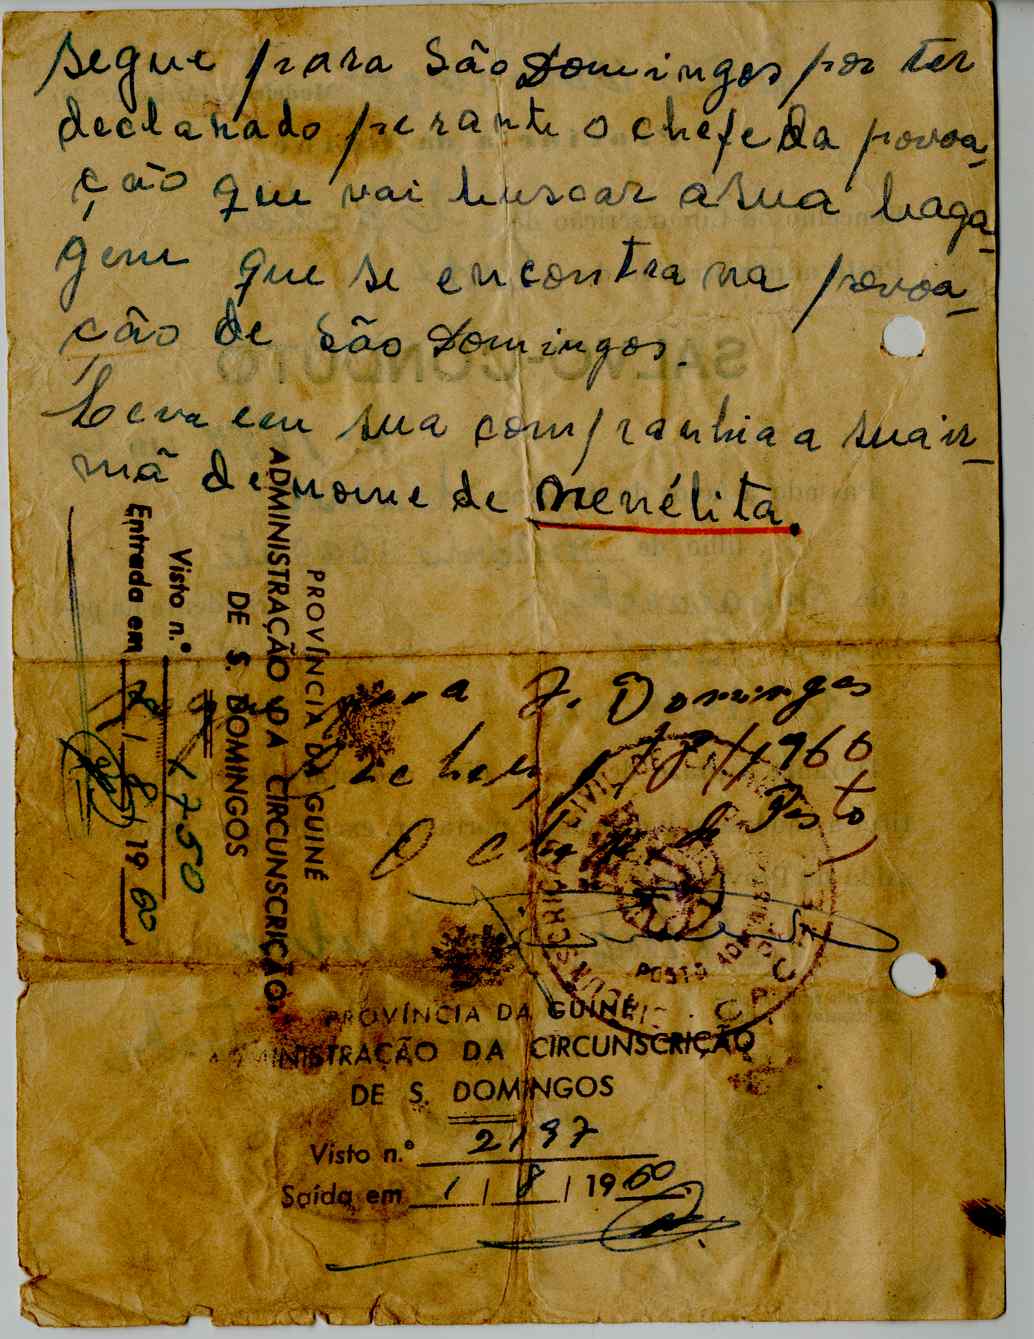 segue para São Domingos por ter
declarado perante o chefe da povoa-
ção que vai buscar a sua baga-
gem que se encontra na povoa-
ção de São Domingos.
Leva em sua companhia a sua ir-
mã de nome de Menélita.
PROVÍNCIA DA GUINÉ
ADMINISTRAÇÃO DA CIRCUNSCRIÇÃO
DE S. DOMINGOS
Visto n.º 1750
Entrada em 1/8/1960
para S. Domingos
1960
O chefe de Posto
POSTO
PROVÍNCIA DA GUINÉ
ADMINISTRAÇÃO DA CIRCUNSCRIÇÃO
DE S. DOMINGOS
Visto n.º 2197
Saída em 1/8/1960
SALVO-CONDUTO